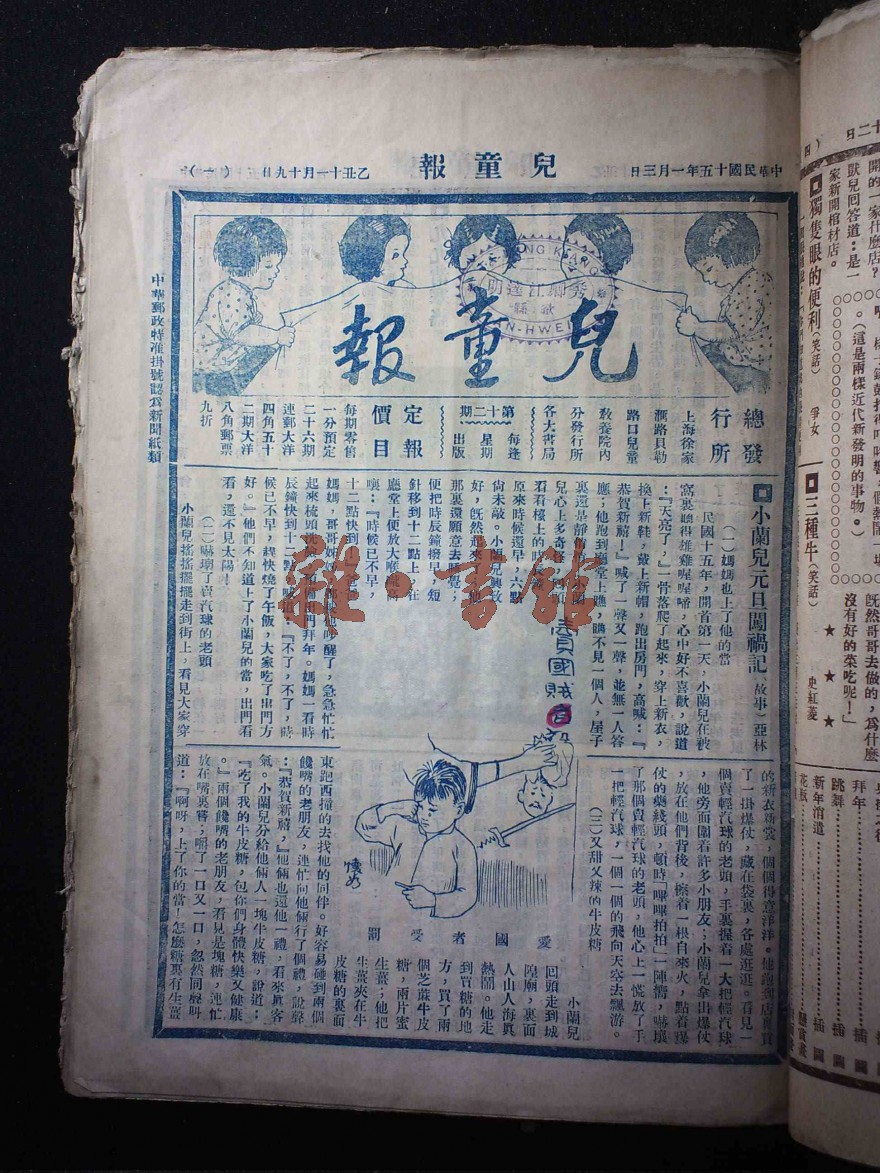 中華民國十五年一月三日
兒童報
乙丑十一月十九日
中華郵政特准掛號認爲新聞紙類
兒童報
總發
行所
上海徐家
滙路貝勒
路口兒童
教養院內
分發行所
各大書局
每逢
星期
出版
第十二期
定報
價目
每期零售
一分預定
二十六期
連郵大洋
四角五十
二期大洋
八角郵票
九折
小蘭兒元旦闖禍記(故事)亞林
(一)媽媽也上了他的當
民國十五年,開首第一天,小蘭兒在被
窩裏聽得雄雞喔喔啼,心中好不喜歡,說道
:『天亮了,』一骨落爬了起來,穿上新衣,
換上新鞋,戴上新帽,跑出房門,高喊:『
恭賀新禧!』喊了一聲又一聲,並無一人答
應;他跑到
堂上瞧,瞧不見一個人,屋子
裏還是靜
兒心上多奇
看看檯上的時
原來時候還早,六點
尙未敲。小蘭兒興致
好,旣然起來了,他
那裏還願意去睡覺;
便把時辰鐘撥早,短
針移到十二點上,在
廳堂上便放大喉嚨
喚:『時候已不早,
十二點快到
媽媽,哥哥姊姊
醒了,急急忙忙
起來梳頭洗
出門拜年。媽媽一看時
辰鐘快到十二點,喊道:『不了,不了,時
候已不早,趕快燒了午飯,大家吃了出門方
好。』他們不知道上了小蘭兒的當,出門看
看,還不見太陽!
(二)嚇壞了賣汽球的老頭
小蘭兒搖搖擺擺走到街上,看見大家穿
的新衣新裳,個個得意洋洋。他跑到店裏買
了一掛爆仗,藏在袋裏,各處逛逛。看見一
個賣輕汽球的老頭,手裏握着一大把輕汽球
,他旁面圍着許多小朋友;小蘭兒拿出爆仗
,放在他們背後,擦着一根自來火,點着爆
仗的藥綫頭,頓時『嗶嗶拍拍』一陣響,嚇壞
了那個賣輕汽球的老頭,他心上一慌放了手
一把輕汽球,一個一個的飛向天空去飄游。
(三)又甜又辣的牛皮糖
小蘭兒
回頭走到城
隍廟,裏面
人山人海眞
熱鬧。他走
到買糖的地
方,買了兩
個芝蔴牛皮
糖,兩片蜜
生薑;他把
生薑夾在牛
皮糖的裏面
東跑西撞的去找他的同伴。好容易碰到兩個
饞嘴的老朋友,連忙向他倆行了個禮,說聲
:『恭賀新禧,』他倆也還他一禮,看來眞客
氣。小蘭兒分給他倆人一塊牛皮糖,說道;
『吃了我的牛皮糖,包你們身體快樂又健康
。』兩個饞嘴的老朋友,看見是塊糖,連忙
放在嘴裏嚼;嚼了一口又一口,忽然同聲叫
道:『啊呀,上了你的當!怎麽糖裏有生薑
賣國賊
愛國者受罰
雜·書館
獨隻眼的便利(笑話) 爭女
三種牛(笑話) 史紅菱
開的一家什麽店?
獃兒回答道:是一
家新開棺材店。
。(這是兩樣近代新發明的事物。)
旣然哥哥去做的,爲什麽
沒有好的菜吃呢!」
拜年 插圖
跳舞 插圖
新年消遣 插圖
花瓶 懸賞畫